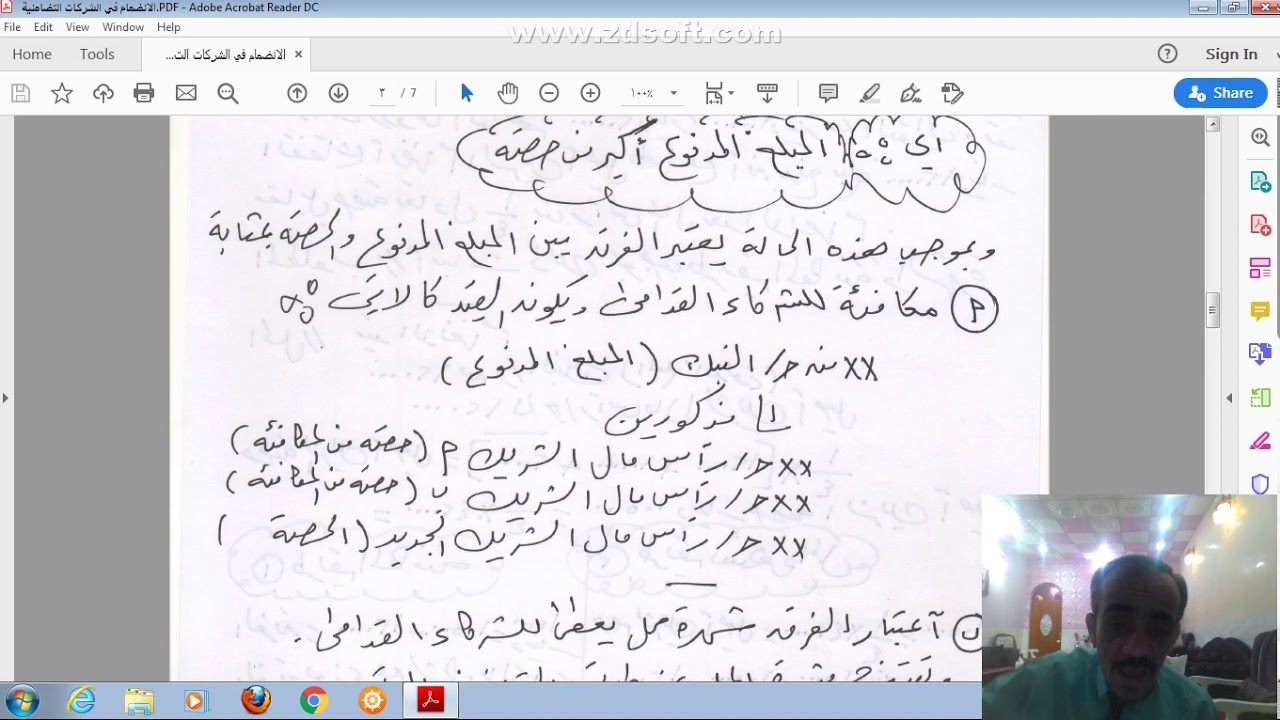 الانضمام في الشركات التضامنية.PDF - Adobe Acrobat Reader DC
File Edit View Window Help
www.zdsoft.com
Home Tools الانضمام في الشركات الت... × ? Sign In
٣ / 7 ١٠٠٪ Share
اي ان المبلغ المدفوع أكبر من حصته
وبموجب هذه الحالة يعتبر الفرق بين المبلغ المدفوع والحصة بمثابة
أ مكافئة للشركاء القدامى ويكون القيد كالاتي
×× من ح/ البنك (المبلغ المدفوع)
الى مذكورين
×× ح/ رأس مال الشريك أ (حصته من المكافئة)
×× ح/ رأس مال الشريك ب (حصته من المكافئة)
×× ح/ رأس مال الشريك الجديد (الحصة)
ب اعتبار الفرق شهرة محل يعطى للشركاء القدامى .